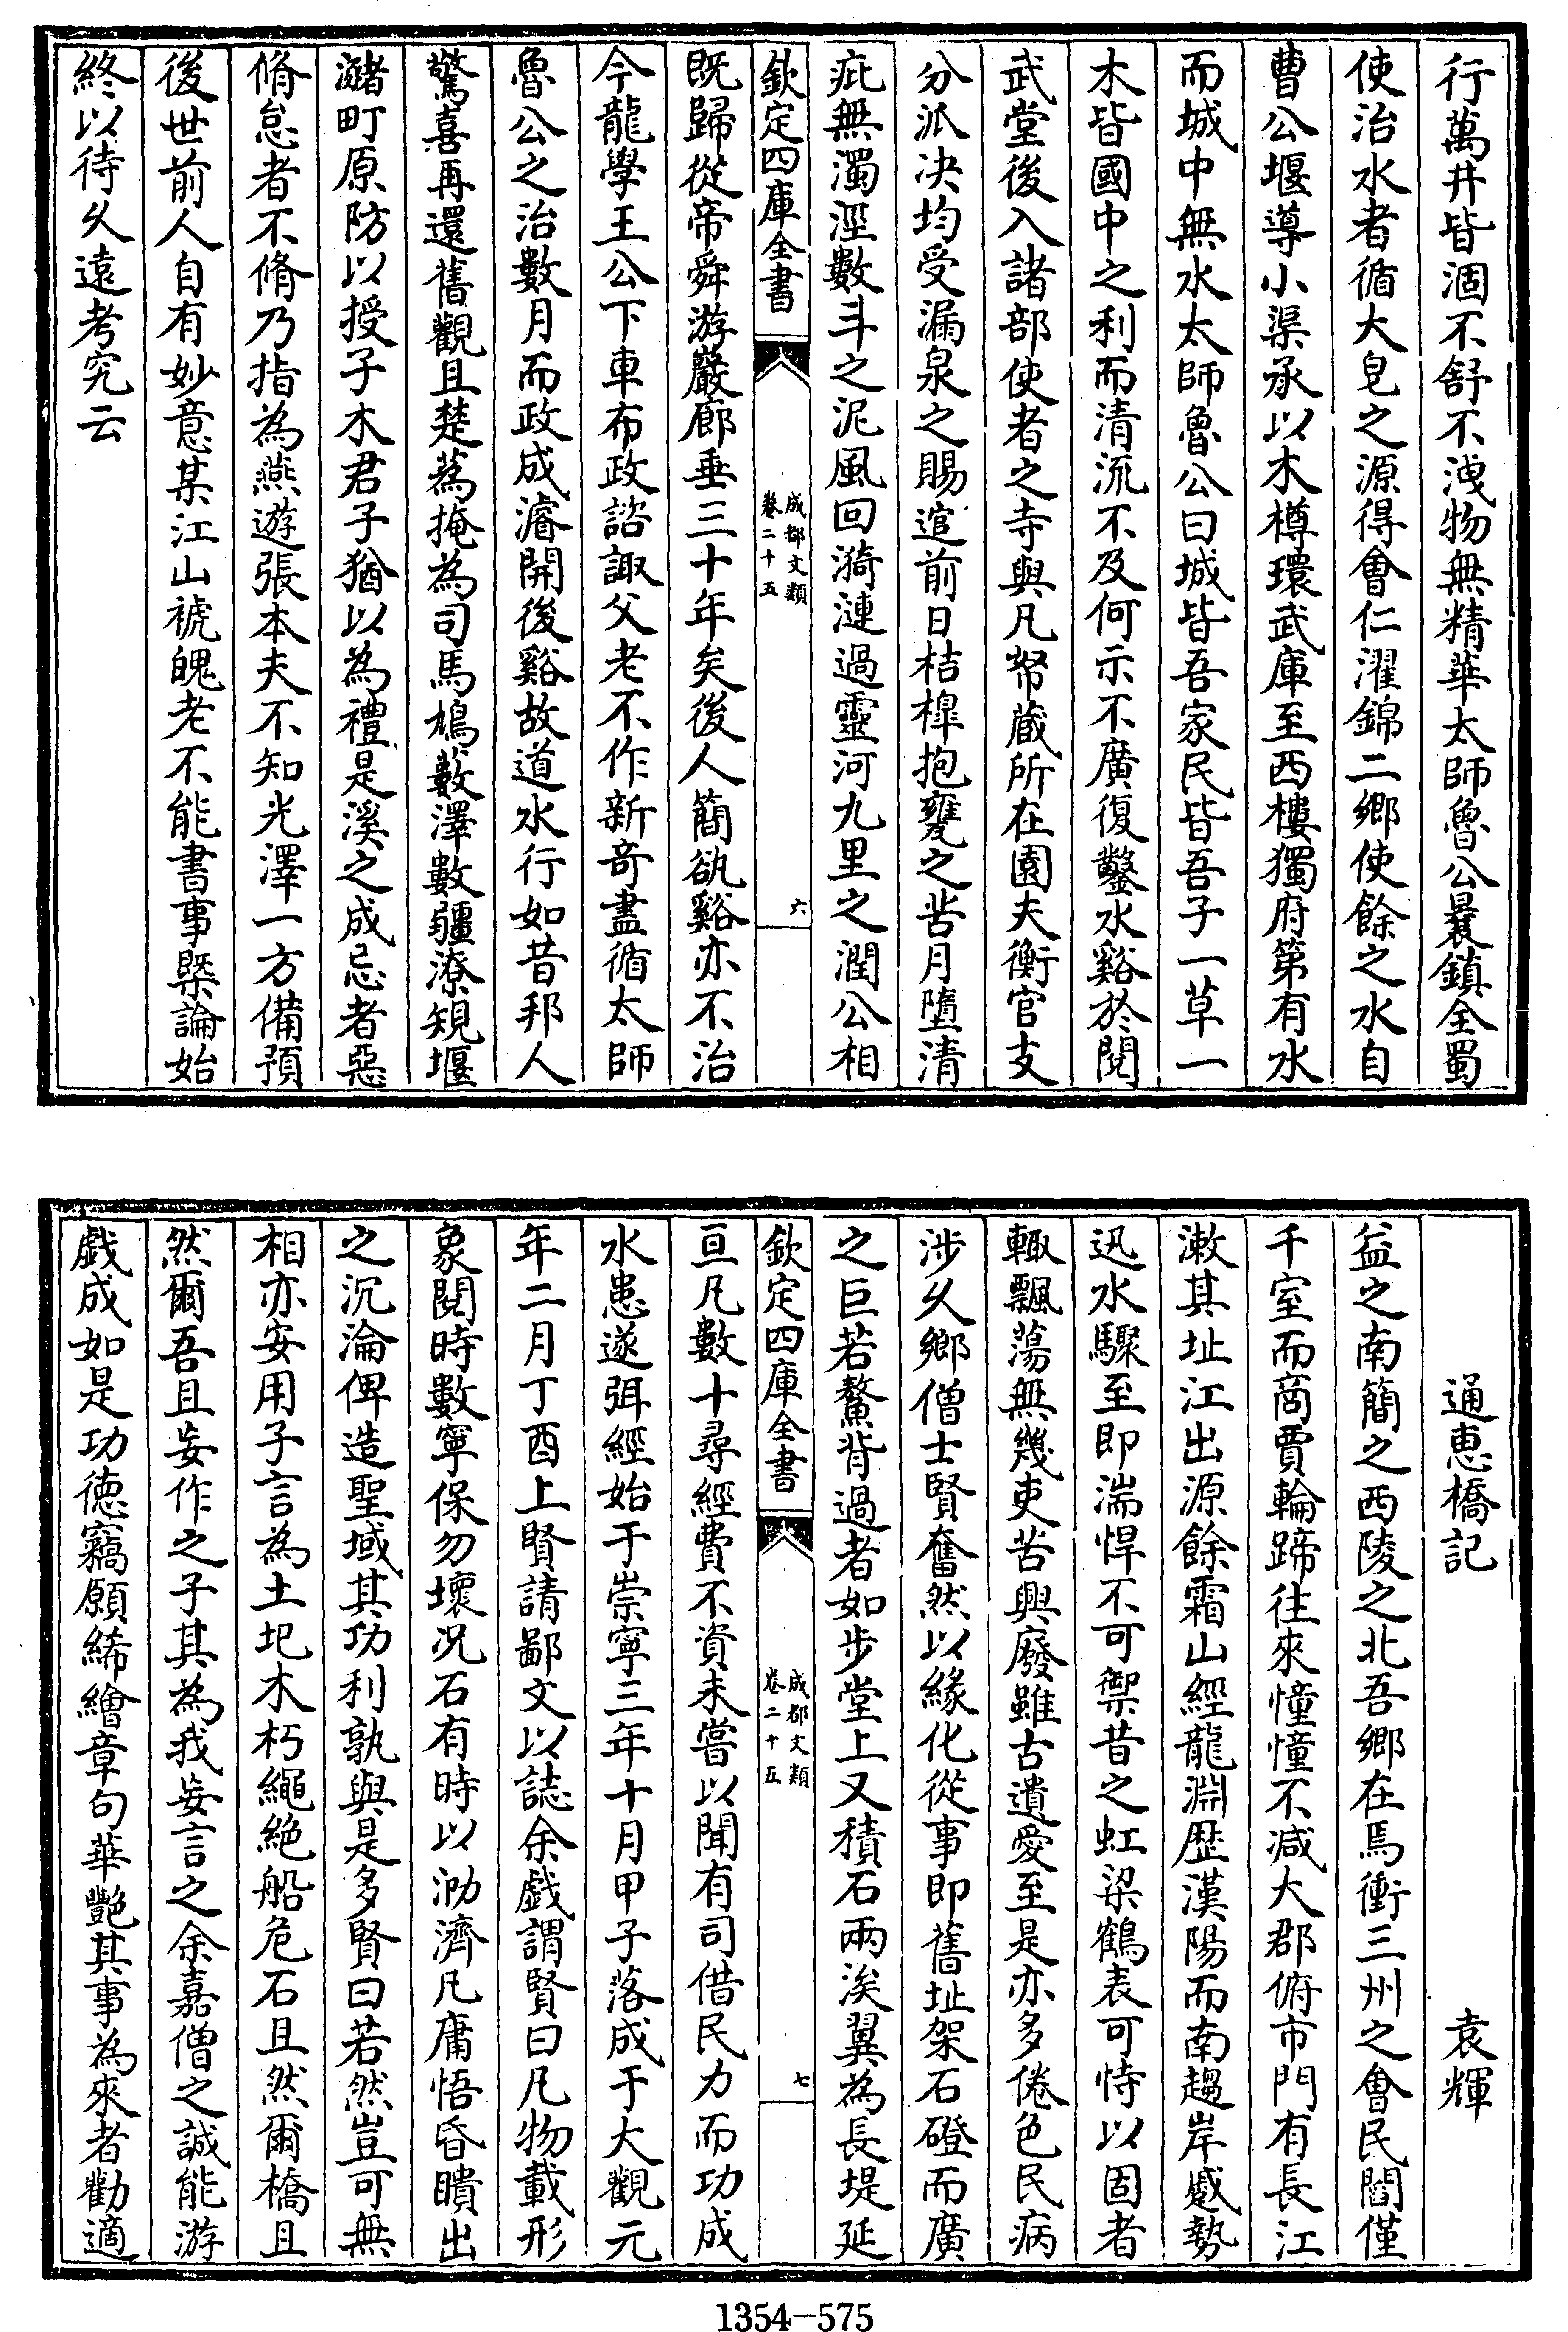 行萬井皆涸不舒不洩物無精華太師魯公曩鎮全蜀
使治水者循大皂之源得會仁濯錦二鄉使餘之水自
曹公堰導小渠承以木樽環武庫至西樓獨府第有水
而城中無水太師魯公曰城皆吾家民皆吾子一草一
木皆國中之利而清流不及何示不廣復鑿水谿於閱
武堂後入諸部使者之寺與凡帑藏所在園夫衡官支
分派决均受漏泉之賜逭前日桔橰抱甕之苦月墮清
疵無濁溼數斗之泥風回漪漣過靈河九里之潤公相
欽定四庫全書
成都文類
卷二十五
六
既歸從帝舜游巖廊垂三十年矣後人簡欲谿亦不治
今龍學王公下車布政諮諏父老不作新奇盡循太師
魯公之治數月而政成濬開後谿故道水行如昔邦人
驚喜再還舊觀且楚蒍掩為司馬鳩藪澤數疆潦規堰
瀦町原防以授子木君子猶以為禮是溪之成忌者惡
脩怠者不脩乃指為燕遊張本夫不知光澤一方備預
後世前人自有妙意某江山褫魄老不能書事槩論始
終以待久遠考究云
通惠橋記
袁輝
益之南簡之西陵之北吾鄉在焉衝三州之會民閻僅
千室而啇賈輪蹄往來憧憧不減大郡俯市門有長江
漱其址江出源餘霜山經龍淵歴漢陽而南趨岸蹙勢
迅水驟至即湍悍不可禦昔之虹梁鶴表可恃以固者
輙飄蕩無幾吏苦興廢雖古遺愛至是亦多倦色民病
涉久鄉僧士賢奮然以緣化從事即舊址架石磴而廣
之巨若鰲背過者如步堂上又積石兩涘翼為長堤延
欽定四庫全書
成都文類
卷二十五
七
亘凡數十尋經費不資未嘗以聞有司借民力而功成
水患遂弭經始于崇寧三年十月甲子落成于大觀元
年二月丁酉上賢請鄙文以誌余戲謂賢曰凡物載形
象閱時數寧保勿壞况石有時以泐濟凡庸悟昏瞶出
之沉淪俾造聖域其功利孰與是多賢曰若然豈可無
相亦安用子言為土圮木朽繩絶船危石且然爾橋且
然爾吾且妄作之子其為我妄言之余嘉僧之誠能游
戲成如是功德竊願絺繪章句華艷其事為來者勸適
1354-575